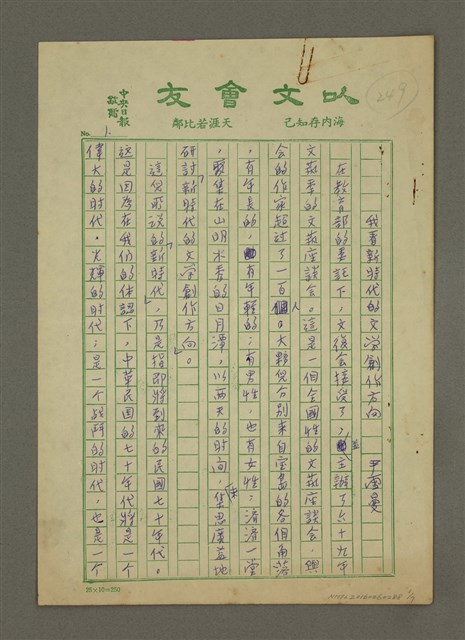 以文會友
海內存知己
天涯若比鄰
中央日報
敬贈
No. 1.
249
我看新時代的文學創作方向
尹雪曼
在教育部的委託下，文復會接受了，並主辦了六十九年
文藝季的文藝座談會。這是一個全國性的文藝座談會，與
會的作家超過了一百個人。大夥兒分別來自寶島的各個角落
，有年長的，有年輕的；有男性，也有女性；濟濟一堂
，聚集在山明水秀的日月潭，以兩天的時間，集思廣益地
研討「新時代的文學創作方向」。
這兒所說的「新時代」，乃是指即將到來的民國七十年代。
這是因為在我們的体認下，中華民國的七十年代將是一個
偉大的時代，光輝的時代；是一個战鬥的時代，也是一個
25×10=250